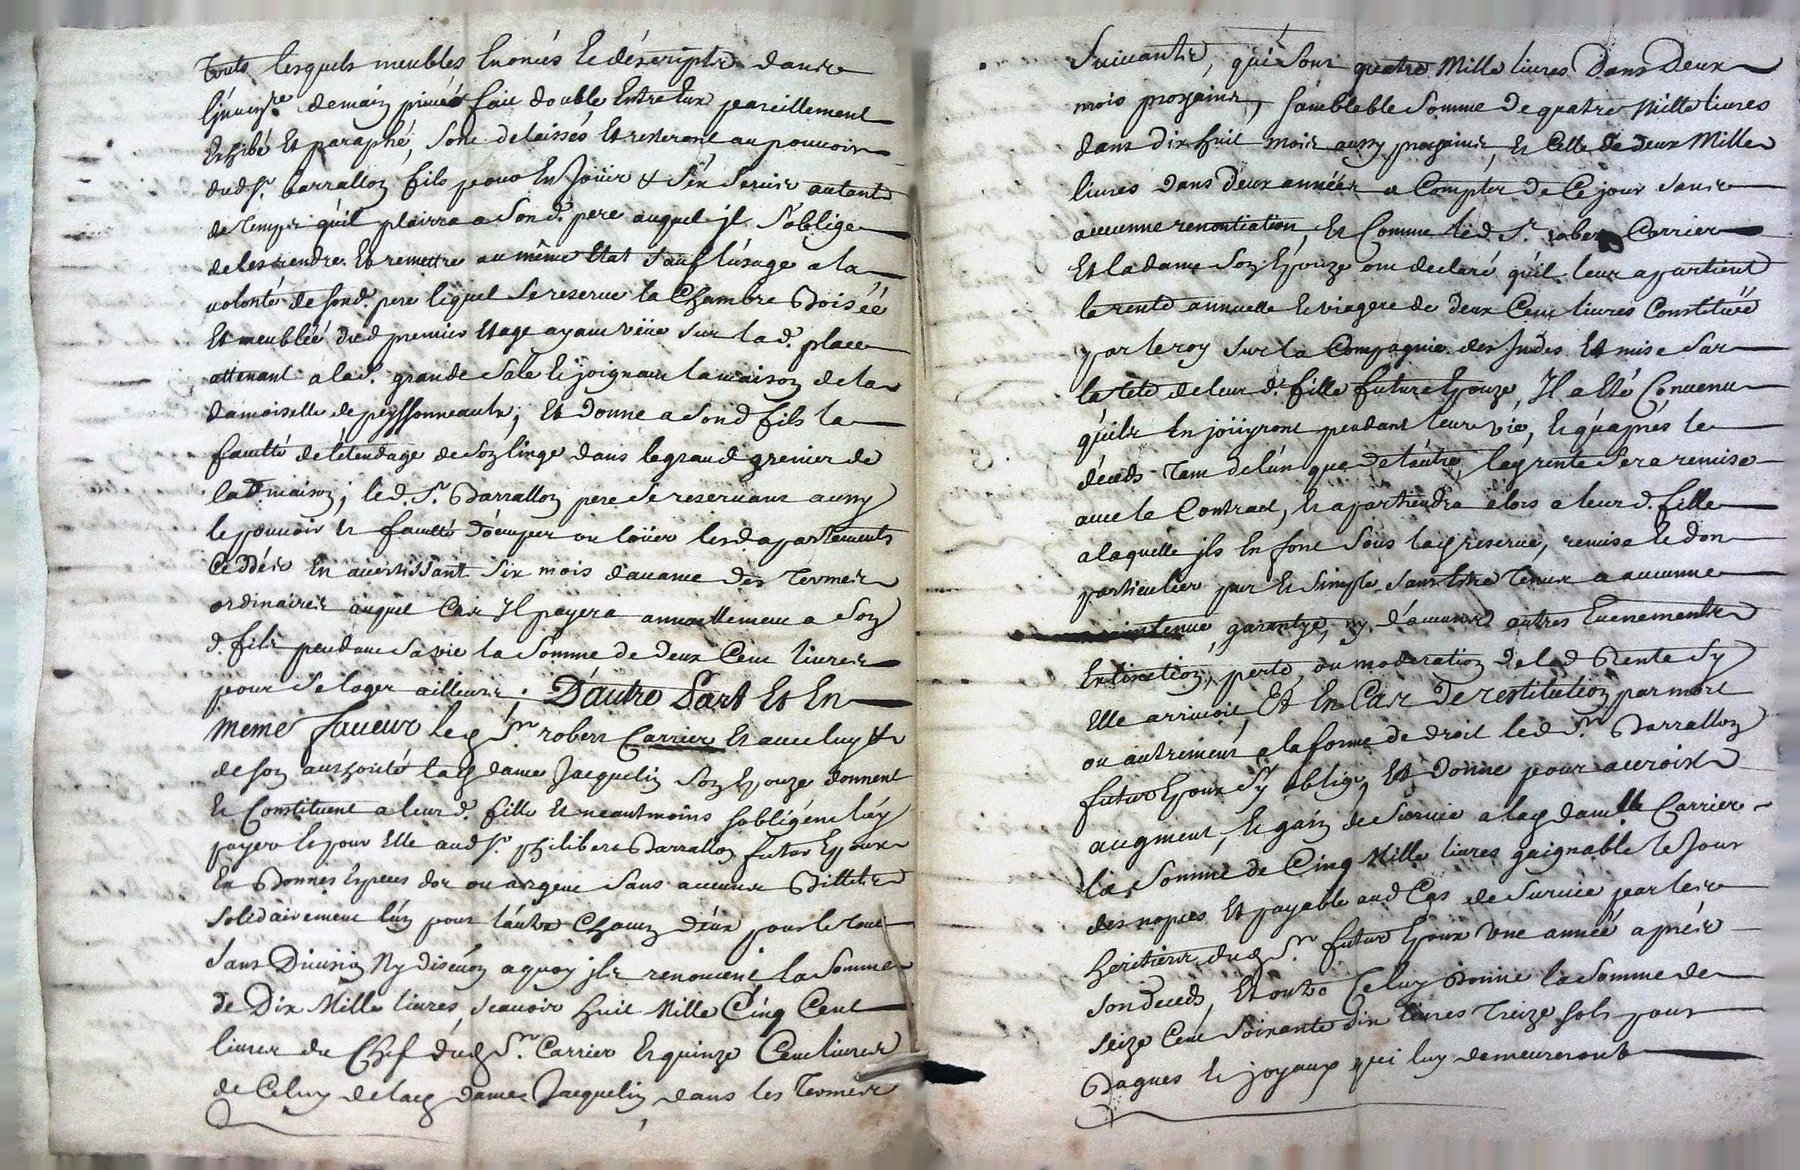 touts lesquels meubles Enoncés Et déscripts dans
l'jnven.re demain privée fait double, Entre Eux pareillement
Exhibé Et paraphé, Sont delaissés, Et resteront au pouvoir
dud. Sr. barrallon fils pour En Joüir & S'én Servir autant
de temps qu'il plairra a Son d. pere auquel jl S'oblige
de les rendre Et remettre au même Etat Sauf l'úsage a la
volonté de Son d. pere lequel Se reserve la Chambre Boisée
Et meublée dud premier Etage ayant vüe Sur la d. place
attenant a la d. grande Sale Et joignant la maison de la
damoiselle de peyssonneaulx; Et donne a Son d fils la
faculté de l'étendage de Son linge dans le grand grenier de
lad. maison; led. Sr. Barrallon pere Se reservant aussy
le pouvoir Et faculté d'óccuper ou loüer lesd apartements
Céddés En avertissant Six mois d'avance des termes
ordinaires auquel Cas Il payera annuellement a Son
d. fils pendant Sa vie la Somme de deux Cent livres
pour Se loger ailleurs; D'autre Part Et En
meme faveur led Sr. robert Carrier Et avec luy &
de Son authorité lad dame Jacquelin Son Epouze donnent
Et Constituent a leur d. fille Et neantmoins S'obligent luy
payer Et pour Elle aud Sr. philibert Barrallon futur Epoux
En Bonnes Especes d'or ou argent Sans aucuns Billets
Solidairement l'ún pour l'áutre Chacun d'éux pour le tout
Sans Division Ny discution a quoy jls renoncent la Somme
de Dix Mille livres, Scavoir huit Mille Cinq Cent
livres du Chef dud Sr. Carrier Et quinze Cent livres
de Celuy de lad dame Jacquelin, dans les termes
Suivants, qui Sont quatre Mille livres Dans Deux
mois proxains, Semblable Somme de quatre Mille livres
dans dix huit mois aussy proxains, Et Celle de deux Mille
livres dans deux années a Compter de Ce jour Sans
aucunne renontiation, Et Comme led. Sr. robert Carrier
Et la dame Son Epouze ont declaré qu'il leur apartient
la rente annuelle Et viagere de deux Cent livres Constituée
par le roy Sur la Compagnie des Indes Et mise Sur
la tete de leur d. fille future Epouze, Il a Eté Convenu
qu'ils En joüiront pendant leur vie, Et qu'aprés le
décéds tant de l'ún que de l'áutre, lad rente Sera remise
avec le Contract, Et apartiendra alors a leur d. fille
a laquelle jls En font Sous lad reserve, remise Et don
particulier pur Et Simple Sans Estre tenus a aucunne
maintenue, garantye, ny d'aucuns autres Evenements
Extinction, perte, ou moderation de lad Rente Sy
Elle arrivoit, Et En Cas De restitution par mort
ou autrement a la forme de droit led Sr. Barrallon
futur Epoux S'y oblige, Et Donne pour accroix
augment, Et gain de Survie a lad dam.lle Carrier
la Somme de Cinq Mille livres gaignable le Jour
des nopces Et payable aud Cas de Survie par les
heritiers dud Sr. futur Epoux Une année aprés
Son deceds, Et outre Ce luy Donne la Somme de
Seize Cent Soixante dix livres treize Sols pour
Bagues Et joyaux qui luy demeureront